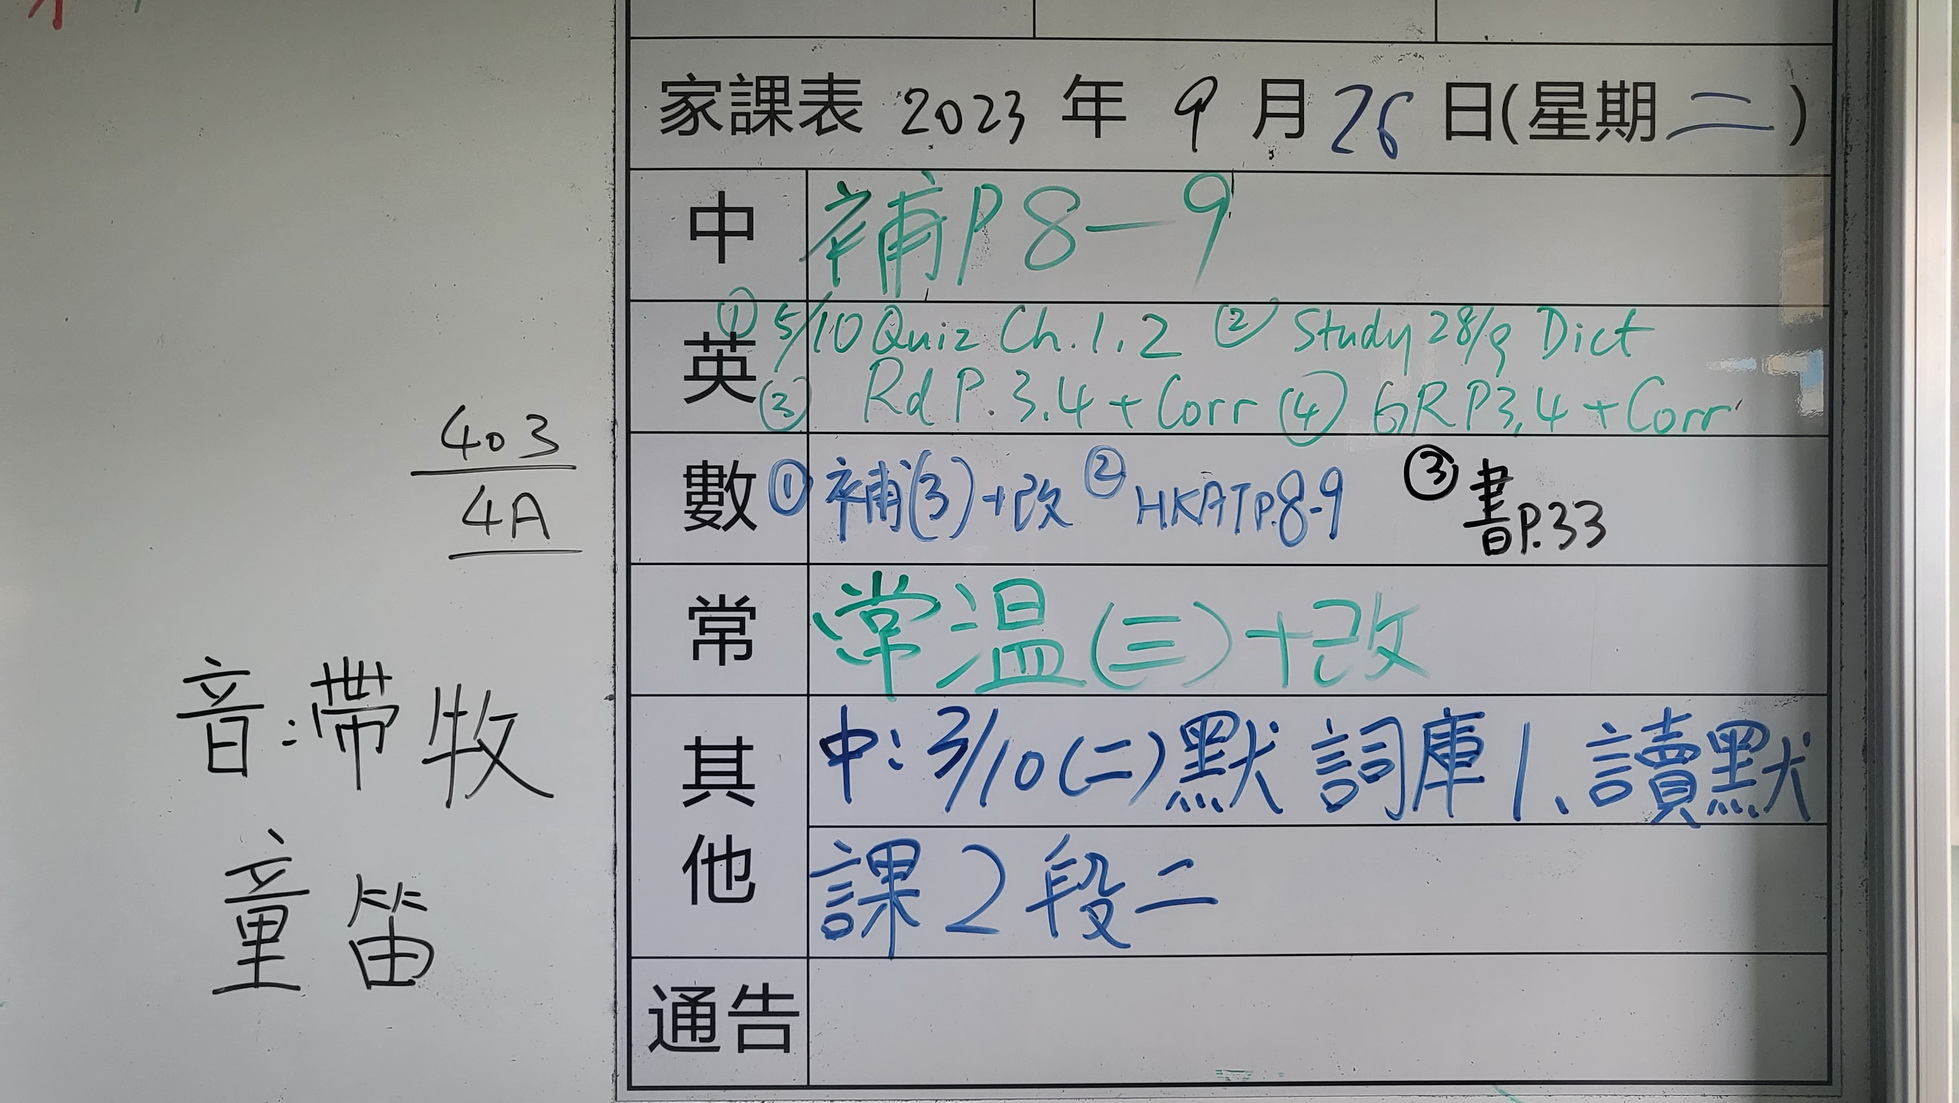 家課表 2023 年 9 月 26 日(星期二)
中 補P 8-9
英 ① 5/10 Quiz Ch.1.2 ② Study 28/9 Dict
③ Rd P.3.4 + Corr ④ GR P3,4 + Corr
數 ① 補(3)+改 ② HKAT P.8-9 ③ 書P.33
常 常温(三)+改
其他 中:3/10(二)默 詞庫1、讀默
課2段二
通告
403
4A
音:帶牧
童笛